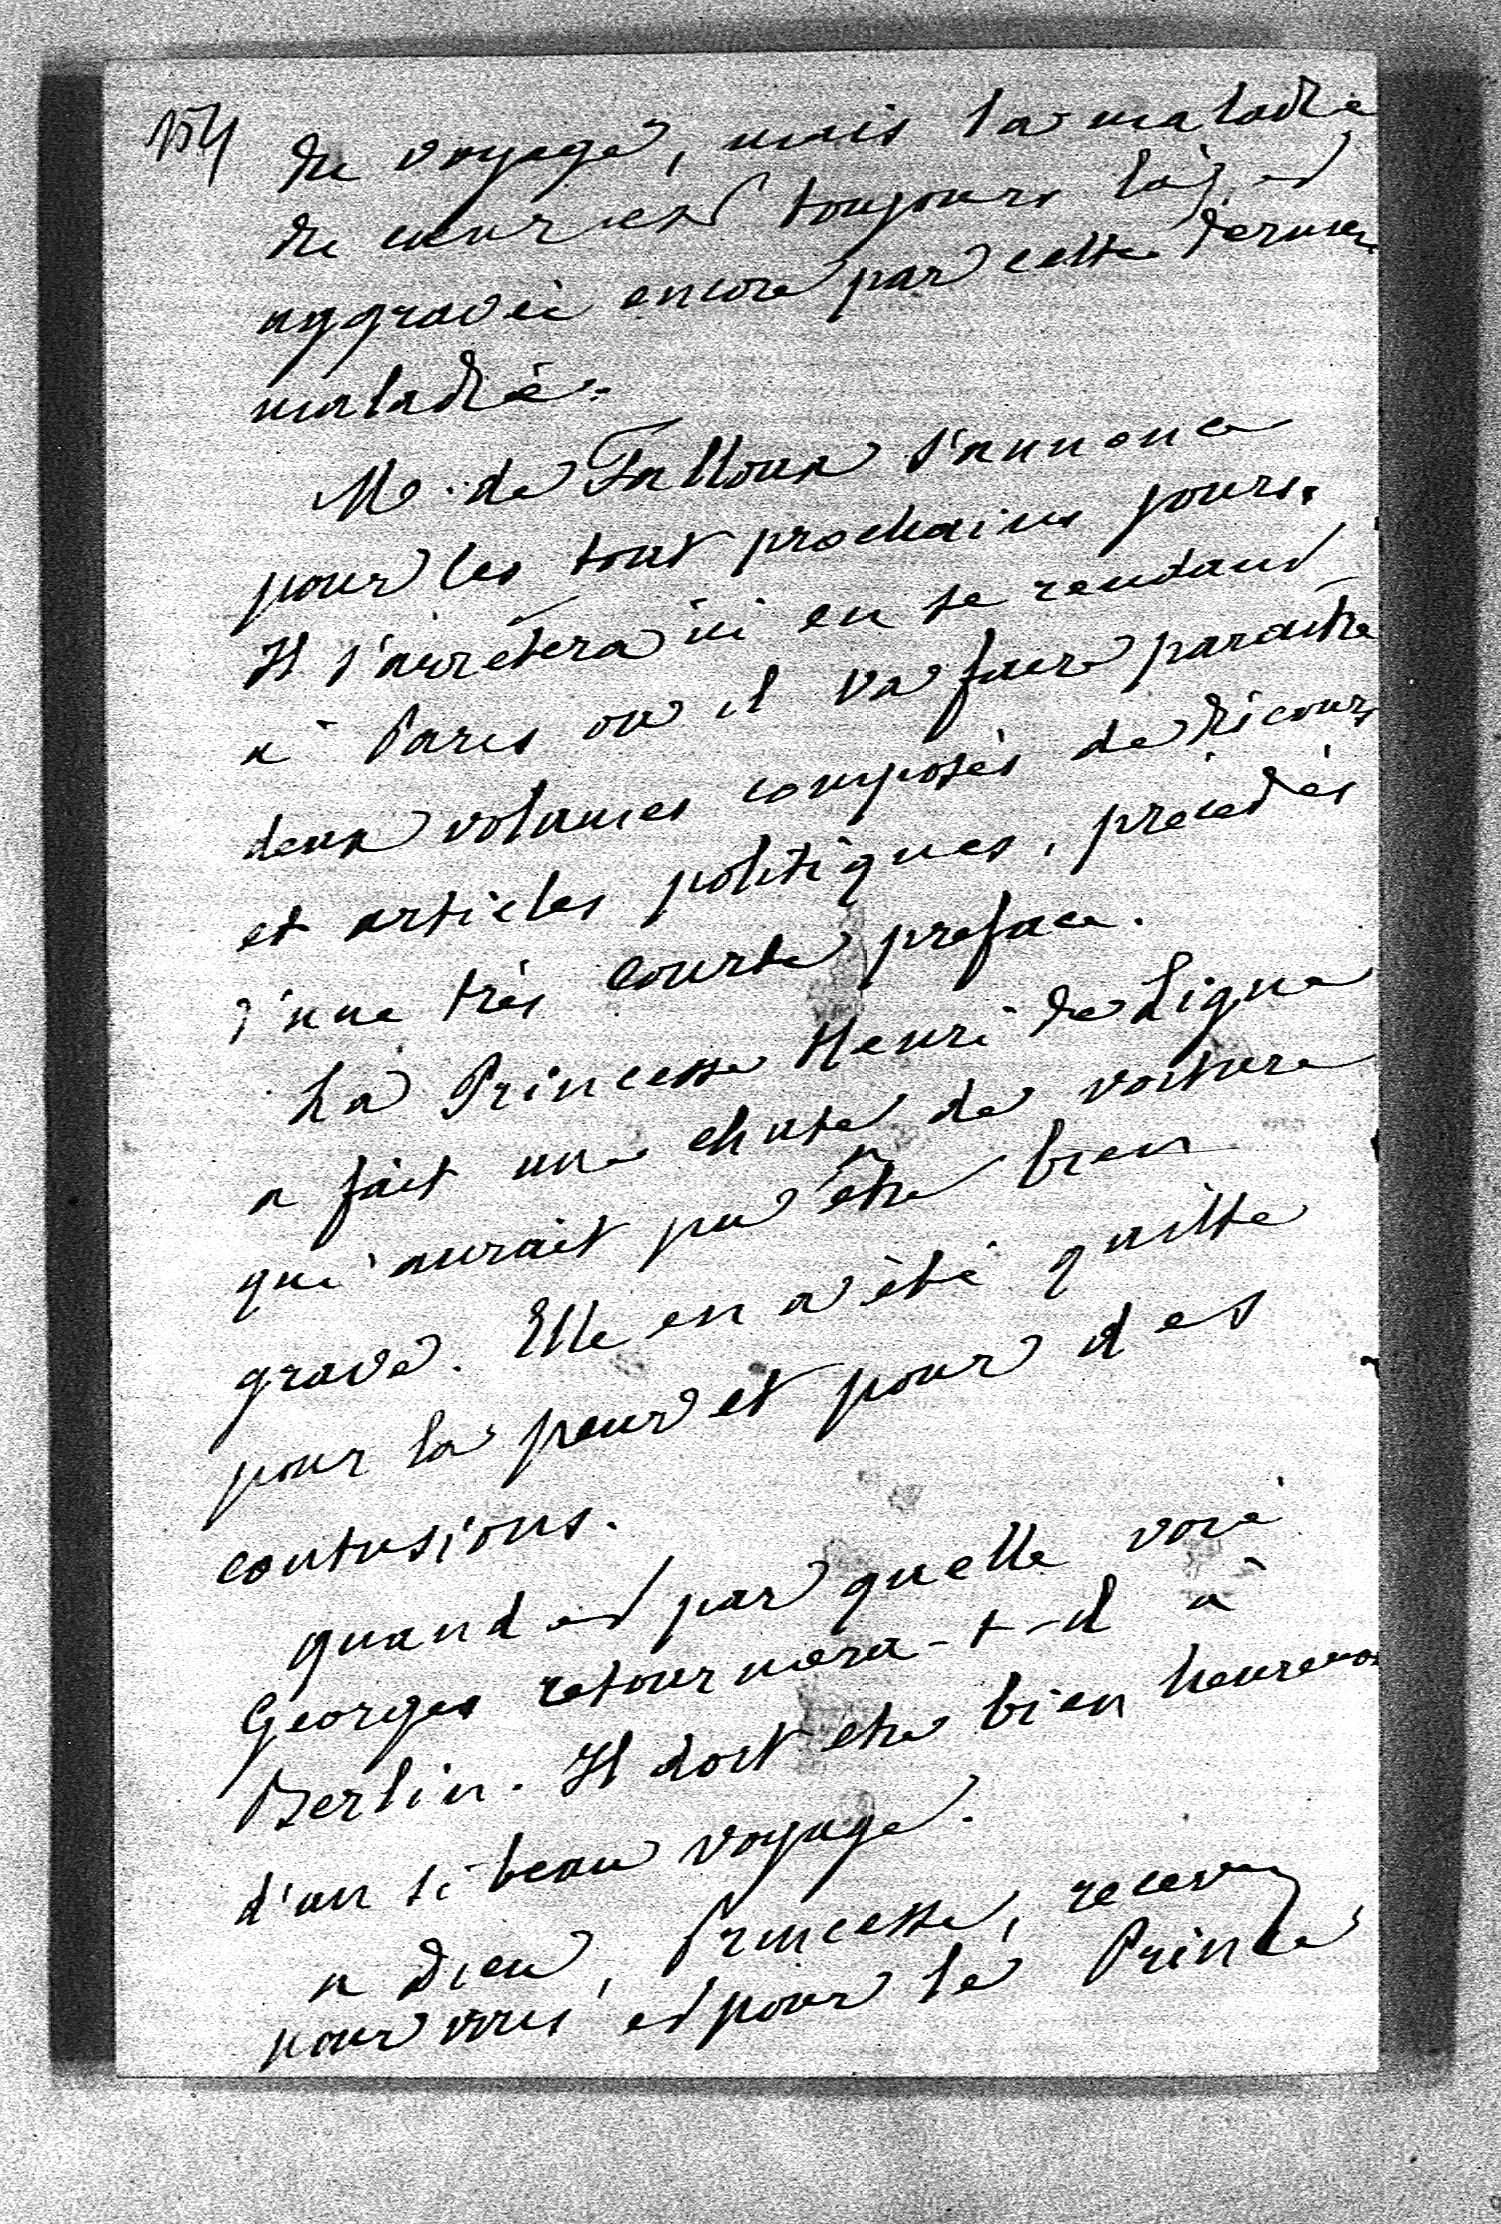 154
du voyage, mais la maladie
du cœur est toujours là, et
aggravée encore par cette dernier
maladie.
Mr. de Falloux s'annonce
pour les tout prochains jours.
Il s'arrêtera ici en se rendant
à Paris où il va faire paraitre
deux volumes composés de discours
et articles politiques, précédés
d'une très courte preface.
La Princesse Henri de Ligne
a fait une chute de voiture
qui aurait pu être bien
grave. Elle en a été quitte
pour la peur et pour des
contusions.
quand et par quelle voie
Georges retournera-t-il à
Berlin. Il doit etre bien heureux
d'un si beau voyage.
a Dieu, Princesse, recevez
pour vous et pour le Prince